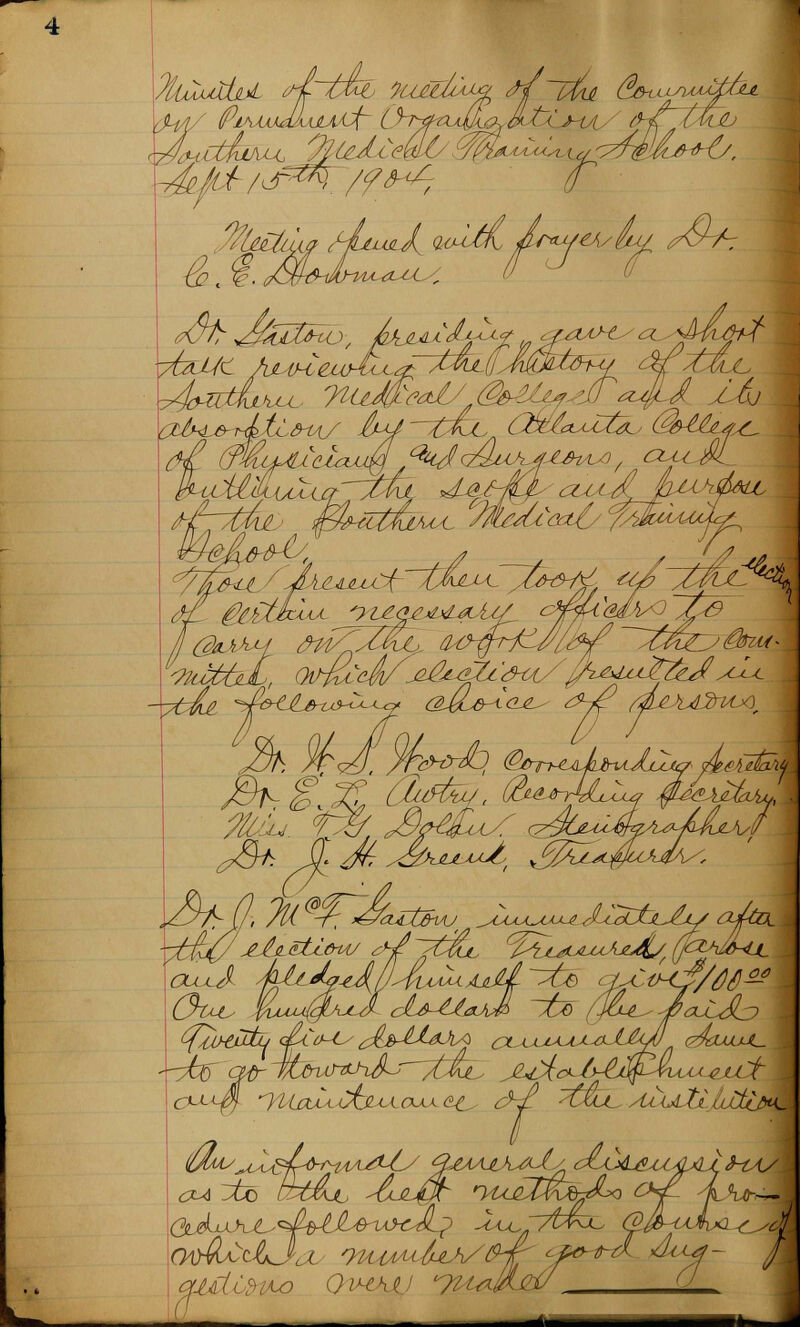 4
Minutes of the meeting of the Committee
on Permanent Organization of the
Southern Medical Training School.
Sept 15th, 1904,
Meeting opened with prayer by Dr.
C. E. Dowman.
Dr. Gaston, presiding, gave a short
talk reviewing the history of the
Southern Medical College and its
absorption by the Atlanta College
of Physicians and Surgeons, and
outlining the scope and purpose
of the Southern Medical Training
School.
Those present then took up the election
of certain necessary officers to
carry on the work of the Com-
mittee, which election resulted in
the following choice of persons,
Dr. W. S. Wood, Corresponding Secretary
Dr. E. L. Awtry, Recording Secretary,
Miss T G Dolan, Stenographer,
Dr. J. H. Green, Treasurer.
Dr J. McF. Gaston, immediately after
the election of the Treasurer, arose
and pledged himself to give $100.00
One hundred dollars to be paid
Twenty five dollars annually, same
to go toward the establishment
and maintenance of the institution
An informal general discussion
as to the best methods of pro-
cedure followed, in the course of
which a number of good sug-
gestions were made